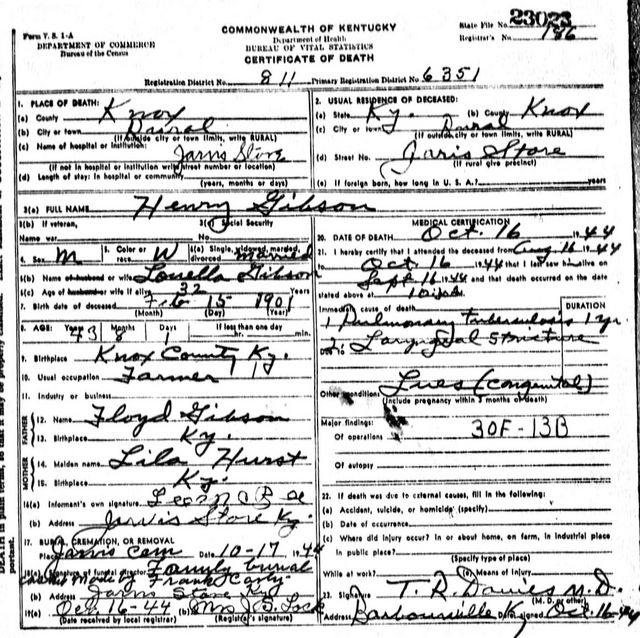 Form V. S. 1-A
DEPARTMENT OF COMMERCE
Bureau of the Census
COMMONWEALTH OF KENTUCKY
Department of Health
BUREAU OF VITAL STATISTICS
CERTIFICATE OF DEATH
State File No. 23023
Registrar's No. 186
Registration District No. 811 Primary Registration District No. 6351
1. PLACE OF DEATH:
(a) County Knox
(b) City or town Rural
(If outside city or town limits, write RURAL)
(c) Name of hospital or institution:
Jarvis Store
(If not in hospital or institution write street number or location)
(d) Length of stay: In hospital or community
(years, months or days)
2. USUAL RESIDENCE OF DECEASED:
(a) State Ky. (b) County Knox
(c) City or town Rural
(If outside city or town limits, write RURAL)
(d) Street No. Jaris Store
(If rural give precinct)
(e) If foreign born, how long in U. S. A.? years
3(a) FULL NAME Henry Gibson
3(b) If veteran,
Name war
3(c) Social Security
No.
4. Sex M 5. Color or race W 6(a) Single, widowed, married, divorced married
6(b) Name of husband or wife Louella Gibson
6(c) Age of husband or wife if alive 32 Years
7. Birth date of deceased Feb 15 1901
(Month) (Day) (Year)
8. AGE: Years 43 Months 8 Days 1 If less than one day
hr. min.
9. Birthplace Knox County Ky.
10. Usual occupation Farmer
11. Industry or business
FATHER
12. Name Floyd Gibson
13. Birthplace Ky.
MOTHER
14. Maiden name Lila Hurst
15. Birthplace Ky.
16(a) Informant's own signature
(b) Address Jarvis Store Ky.
17. BURIAL, CREMATION, OR REMOVAL
Place Jarvis Cem Date 10-17 1944
18(a) Signature of funeral director Family burial
casket Made by Frank
(b) Address Jarvis Store Ky
19(a) Oct 16-44 (b) Mrs J. S. Lock
(Date received by local registrar) (Registrar's signature)
MEDICAL CERTIFICATION
20. DATE OF DEATH Oct. 16 1944
21. I hereby certify that I attended the deceased from Aug 16 1944
to Oct 16 1944 that I last saw him alive on
Sept 16 1944 and that death occurred on the date
stated above at
Immediate cause of death DURATION
1 Pulmonary Tuberculosis 1 yr.
Due to 2. Laryngeal Stricture
Other conditions Lues (congenital)
(Include pregnancy within 3 months of death)
Major findings:
Of operations 30F-13B
Of autopsy
22. If death was due to external causes, fill in the following:
(a) Accident, suicide, or homicide (specify)
(b) Date of occurrence
(c) Where did injury occur? In or about home, on farm, in industrial place
in public place?
(Specify type of place)
While at work? (e) Means of injury
23. Signature T. R. Davies M.D.
(M. D. or other)
Address Barbourville Ky Date signed Oct. 16-44
DEATH in plain terms, so that it may be properly classified.
portant.